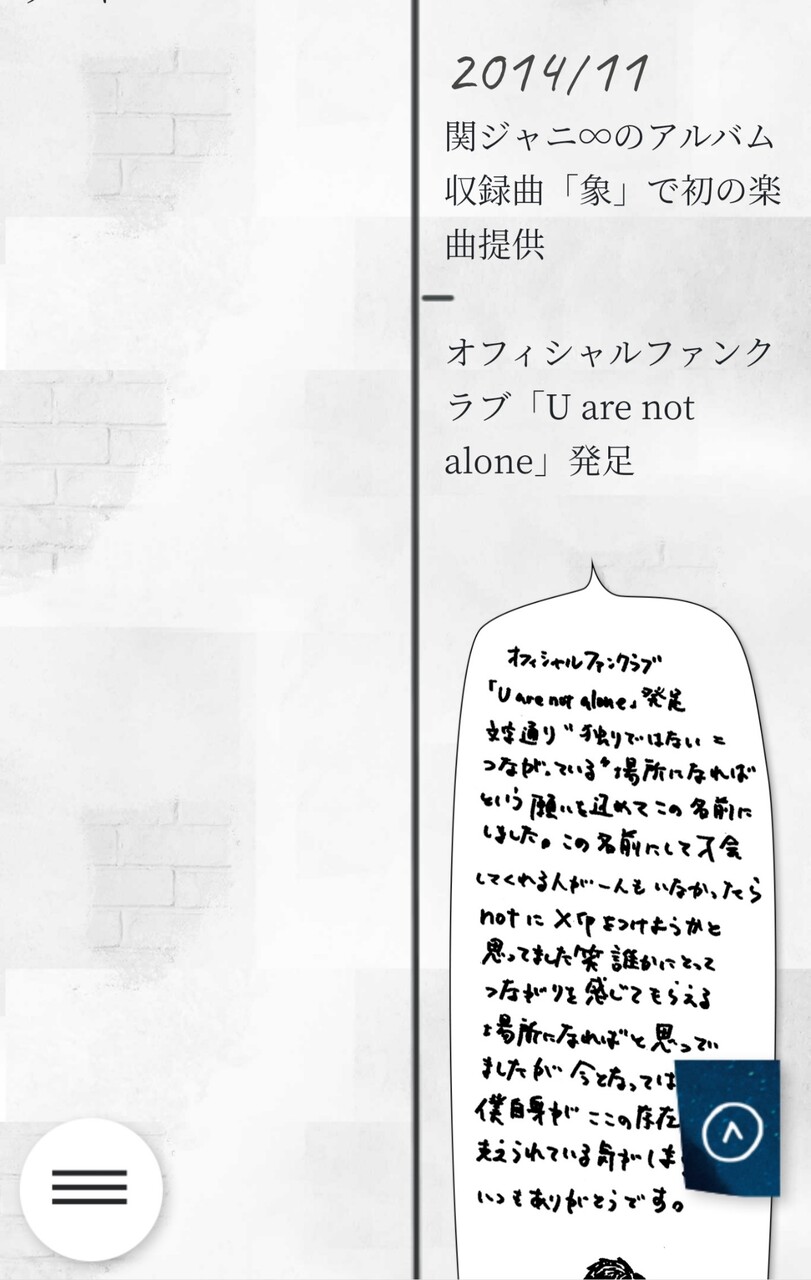 2014/11
関ジャニ∞のアルバム
収録曲「象」で初の楽
曲提供
オフィシャルファンク
ラブ「U are not
alone」発足
オフィシャルファンクラブ
「U are not alone」発足
文字通り“独りではない=
つながっている”場所になれば
という願いを込めてこの名前に
しました。この名前にして入会
してくれる人が一人もいなかったら
notに×印をつけようかと
思ってました笑 誰かにとって
つながりを感じてもらえる
場所になればと思って
ましたが 今となっては
僕自身が ここの存在
支えられている気がしま
いつもありがとうです。